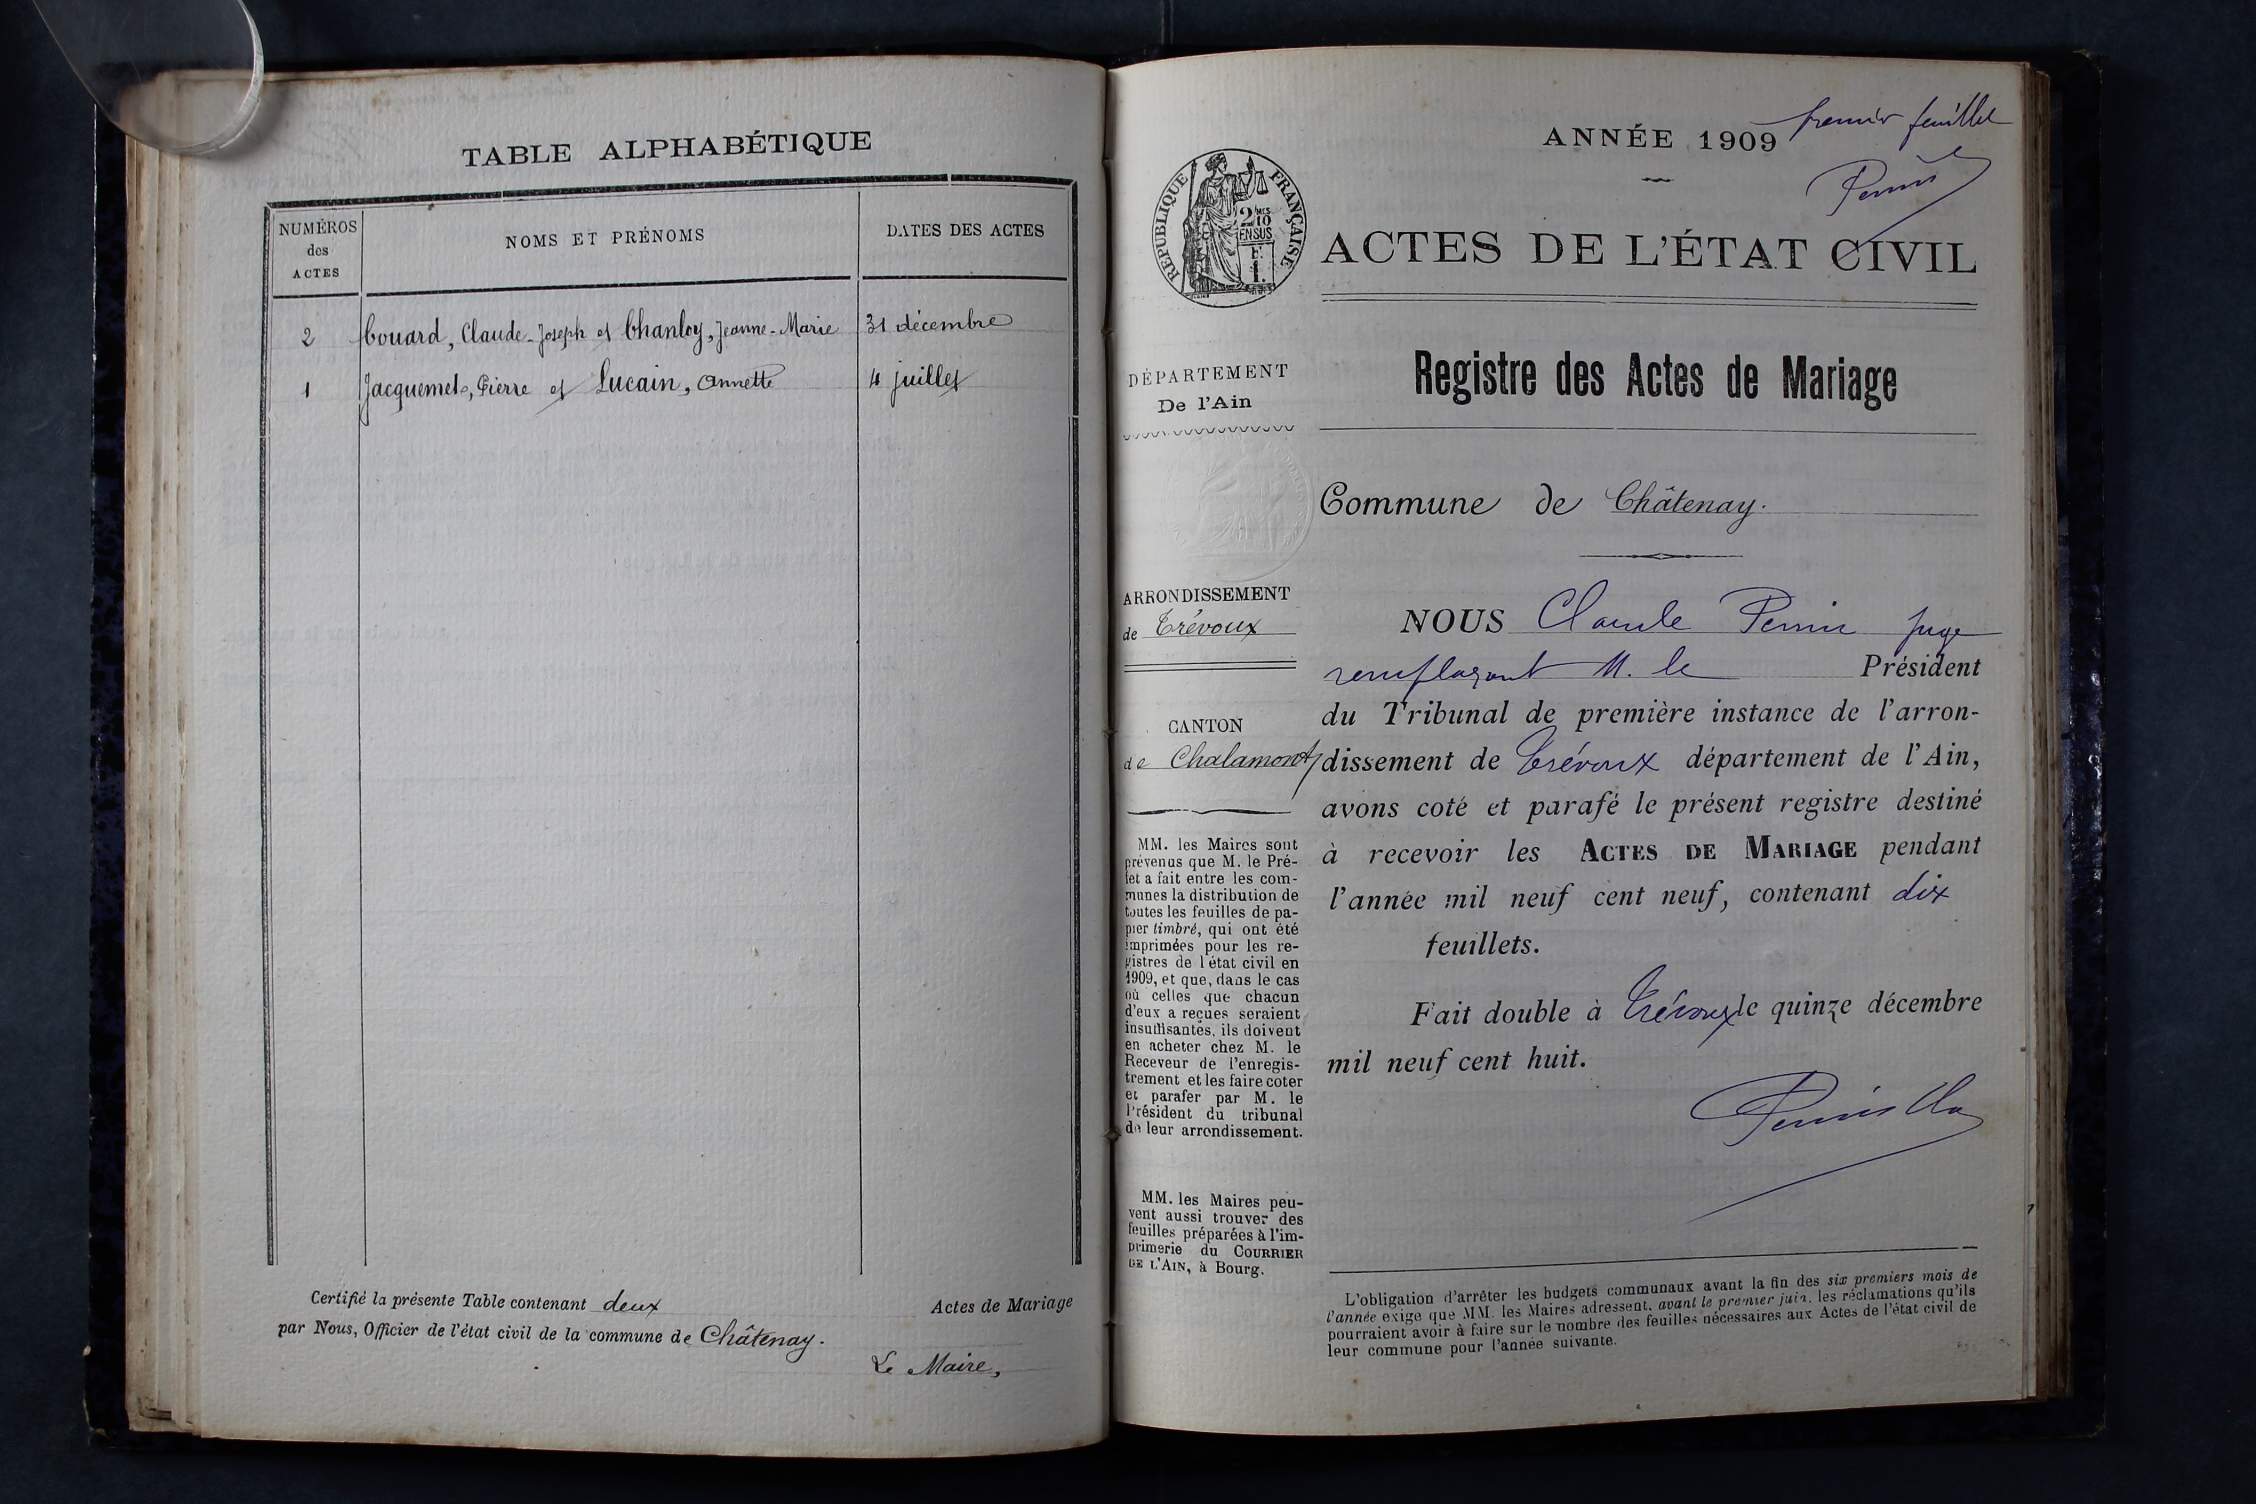 TABLE ALPHABÉTIQUE
NUMÉROS
des
ACTES
NOMS ET PRÉNOMS
DATES DES ACTES
2 Couard, Claude-Joseph et Chanloy, Jeanne-Marie 31 décembre
1 Jacquemet, Pierre et Lucain, Annette 4 juillet
Certifié la présente Table contenant deux Actes de Mariage
par Nous, Officier de l'état civil de la commune de Châtenay.
Le Maire,
premier feuillet
ANNÉE 1909
RÉPUBLIQUE FRANÇAISE
2/10
EN SUS
ACTES DE L'ÉTAT CIVIL
DÉPARTEMENT
De l'Ain
ARRONDISSEMENT
de Trévoux
CANTON
de Chalamont
MM. les Maires sont
prévenus que M. le Pré-
fet a fait entre les com-
munes la distribution de
toutes les feuilles de pa-
pier timbré, qui ont été
imprimées pour les re-
gistres de l'état civil en
1909, et que, dans le cas
où celles que chacun
d'eux a reçues seraient
insuffisantes, ils doivent
en acheter chez M. le
Receveur de l'enregis-
trement et les faire coter
et parafer par M. le
Président du tribunal
de leur arrondissement.
MM. les Maires peu-
vent aussi trouver des
feuilles préparées à l'im-
primerie du COURRIER
DE L'AIN, à Bourg.
Registre des Actes de Mariage
Commune de Châtenay.
NOUS Claude Perrin juge
remplaçant M. le Président
du Tribunal de première instance de l'arron-
dissement de Trévoux département de l'Ain,
avons coté et parafé le présent registre destiné
à recevoir les ACTES DE MARIAGE pendant
l'année mil neuf cent neuf, contenant dix
feuillets.
Fait double à Trévoux le quinze décembre
mil neuf cent huit.
L'obligation d'arrêter les budgets communaux avant la fin des six premiers mois de
l'année exige que MM. les Maires adressent, avant le premier juin, les réclamations qu'ils
pourraient avoir à faire sur le nombre des feuilles nécessaires aux Actes de l'état civil de
leur commune pour l'année suivante.